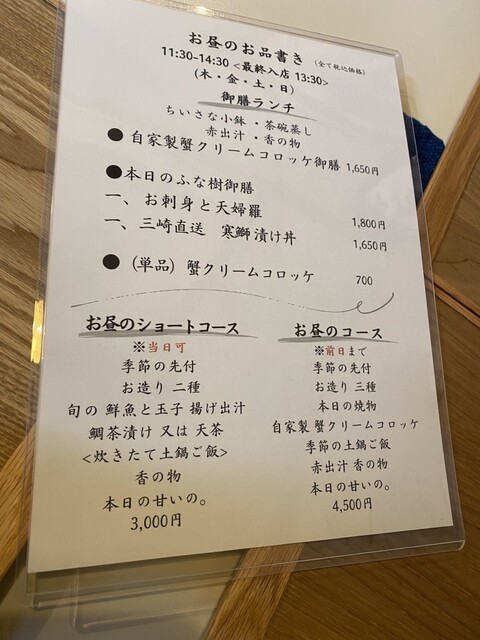 お昼のお品書き (全て税込価格)
11:30-14:30 <最終入店 13:30>
(木・金・土・日)
御膳ランチ
ちいさな小鉢・茶碗蒸し
赤出汁・香の物
●自家製蟹クリームコロッケ御膳 1,650円
●本日のふな樹御膳
一、お刺身と天婦羅 1,800円
一、三崎直送 寒鰤漬け丼 1,650円
●(単品)蟹クリームコロッケ 700
お昼のショートコース
※当日可
季節の先付
お造り 二種
旬の鮮魚と玉子 揚げ出汁
鯛茶漬け 又は 天茶
<炊きたて土鍋ご飯>
香の物
本日の甘いの。
3,000円
お昼のコース
※前日まで
季節の先付
お造り 三種
本日の焼物
自家製 蟹クリームコロッケ
季節の土鍋ご飯
赤出汁 香の物
本日の甘いの。
4,500円